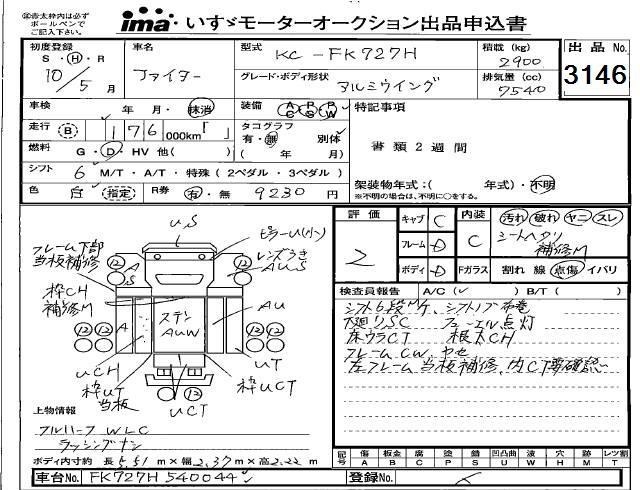 ㊟赤太枠内は必ず
ボールペンで
ご記入下さい。
ima いすゞモーターオークション出品申込書
初度登録 S・H・R 10/5月
車名 ファイター
型式 KC-FK727H
グレード・ボディ形状 アルミウイング
積載(kg) 2900
排気量(cc) 7540
出品 No. 3146
車検 年・月・抹消
装備 AC PS PW
走行 B 176,000km「 」
タコグラフ 有・無 別体
( 年 月)
燃料 G・D・HV 他( )
シフト 6 M/T・A/T・特殊(2ペダル・3ペダル)
色 白 指定 R券 有・無 9230円
特記事項
書類2週間
架装物年式:( 年式)・不明
※不明の場合は、不明に○をする。
評価 2
キャブ C
フレーム D
ボディ D
内装 C
汚れ 破れ ヤニ スレ
シートヘタリ
補修M
Fガラス 割れ 線 点傷 イバリ
検査員報告 A/C(✓) B/T( )
シフト6段Mケ、シフトノブ布巻
下廻りSC
点灯
床ウラCT 根太CH
フレームCW、ヤセ
左フレーム当板補修、内CT要確認
U,S
フレーム下部
当板補修
枠CH
補修M
A
S
ピラーU(小)
レンズうき
A U,S
ステン
AUW
AU
UT
UCH
枠UT
当板
枠UCT
UCT
12
上物情報
フルハーフ WLC
ラッシングナシ
ボディ内寸約 長5.51m×幅2.37m×高2.22m
記号 傷A 板金B 腐C 塗P 錆S 凹凸曲U 波W 穴H 跡M レツ割T
車台No. FK727H 540044
登録No.